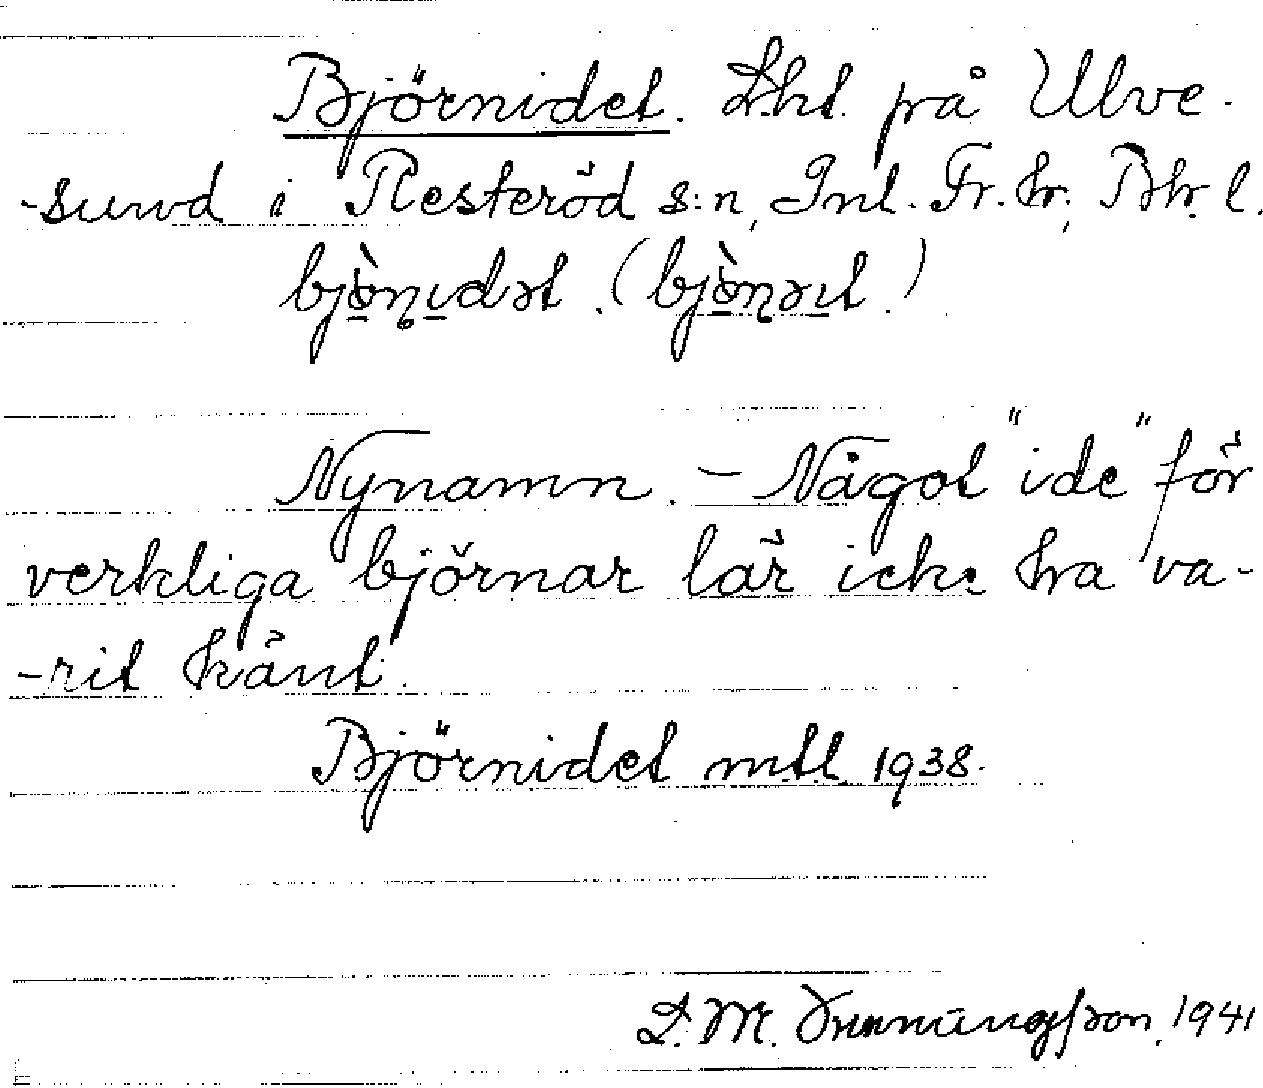 Björnidet. Lht. på Ulve-
-sund i Resteröd s:n, Inl. Fr. hr; Bhr. l.
bjö̀ṇıdət. (bjö̀ṇəıt.)
Nynamn. – Något "ide" för
verkliga björnar lär icke ha va-
-rit känt.
Björnidet mtl 1938.
1941